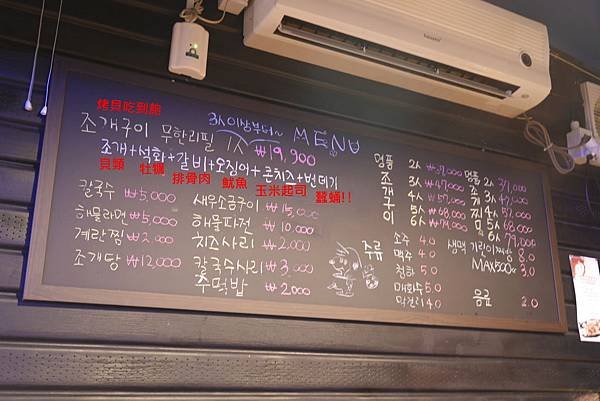 烤貝吃到飽
3人이상부터~ MENU
조개구이 무한리필 1人 ₩19,900
조개+석화+갈비+오징어+콘치즈+번데기
貝類 牡蠣 排骨肉 魷魚 玉米起司 蠶蛹!!
칼국수 ₩5,000
해물라면 ₩5,000
계란찜 ₩2,000
조개탕 ₩12,000
새우소금구이 ₩15,000
해물파전 ₩10,000
치즈사리 ₩2,000
칼국수사리 ₩3,000
주먹밥 ₩2000
명품 조개구이
2人 ₩37,000
3人 ₩47,000
4人 ₩57,000
5人 ₩68,000
6人 ₩79,000
명품 조개찜
2人 37,000
3人 47,000
4人 52,000
5人 68,000
6人 79,000
주류
소주 4.0
맥주 4.0
청하 5.0
매화수 5.0
막걸리 4.0
생맥 기린이찌방 8.0
MAX500cc 3.0
음료 2.0